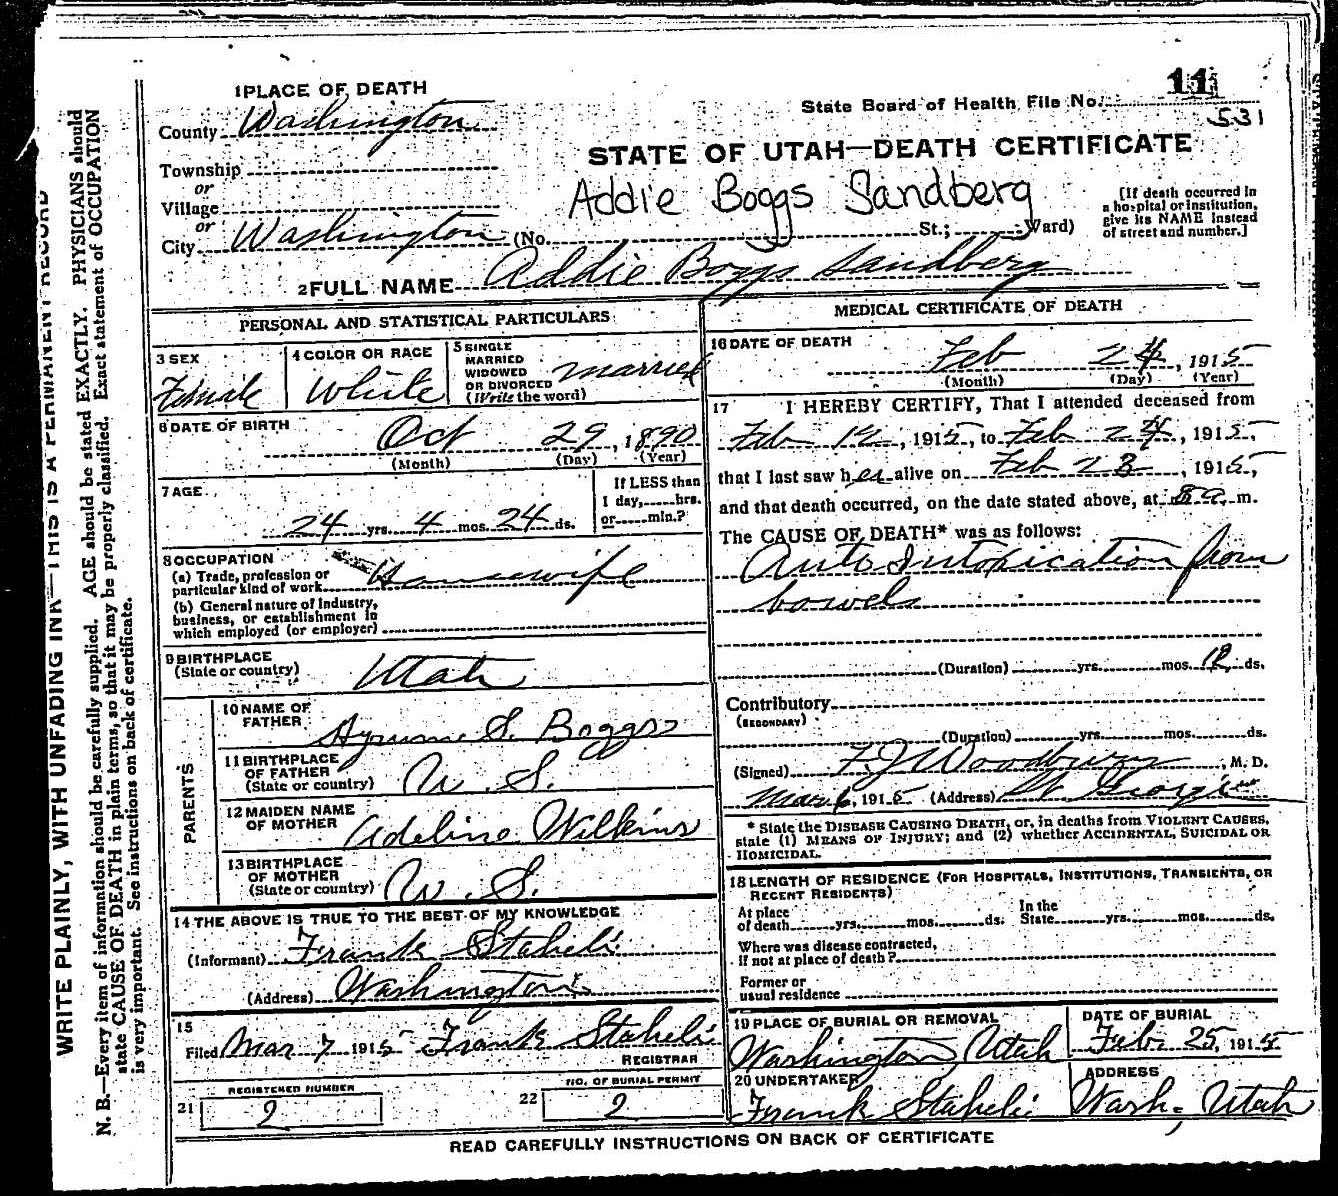 11
State Board of Health File No.
531
1 PLACE OF DEATH
County Washington
Township
or
Village
or
City Washington (No. St.; Ward)
STATE OF UTAH—DEATH CERTIFICATE
Addie Boggs Sandberg
[If death occurred in
a hospital or institution,
give its NAME instead
of street and number.]
2 FULL NAME Addie Boggs Sandberg
PERSONAL AND STATISTICAL PARTICULARS
3 SEX
Female
4 COLOR OR RACE
White
5 SINGLE
MARRIED
WIDOWED
OR DIVORCED
(Write the word)
married
6 DATE OF BIRTH
Oct 29, 1890
(Month) (Day) (Year)
7 AGE
24 yrs. 4 mos. 24 ds.
If LESS than
1 day, hrs.
or min.?
8 OCCUPATION
(a) Trade, profession or
particular kind of work Housewife
(b) General nature of industry,
business, or establishment in
which employed (or employer)
9 BIRTHPLACE
(State or country) Utah
PARENTS
10 NAME OF
FATHER Hyrum S. Boggs
11 BIRTHPLACE
OF FATHER
(State or country) U. S.
12 MAIDEN NAME
OF MOTHER Adeline Wilkins
13 BIRTHPLACE
OF MOTHER
(State or country) U. S.
14 THE ABOVE IS TRUE TO THE BEST OF MY KNOWLEDGE
(Informant) Frank Staheli
(Address) Washington
15
Filed Mar 7 1915 Frank Staheli
REGISTRAR
21 REGISTERED NUMBER
2
22 NO. OF BURIAL PERMIT
2
MEDICAL CERTIFICATE OF DEATH
16 DATE OF DEATH
Feb 24, 1915
(Month) (Day) (Year)
17 I HEREBY CERTIFY, That I attended deceased from
Feb 12, 1915, to Feb 24, 1915,
that I last saw her alive on Feb 23, 1915,
and that death occurred, on the date stated above, at 8 a. m.
The CAUSE OF DEATH* was as follows:
Auto Intoxication from
bowels
(Duration) yrs. mos. 12 ds.
Contributory
(SECONDARY)
(Duration) yrs. mos. ds.
(Signed) F J Woodbury, M. D.
Mar 6, 1915 (Address) St George
* State the DISEASE CAUSING DEATH, or, in deaths from VIOLENT CAUSES,
state (1) MEANS OF INJURY; and (2) whether ACCIDENTAL, SUICIDAL OR
HOMICIDAL.
18 LENGTH OF RESIDENCE (FOR HOSPITALS, INSTITUTIONS, TRANSIENTS, OR
RECENT RESIDENTS)
At place
of death yrs. mos. ds.
In the
State yrs. mos. ds.
Where was disease contracted,
if not at place of death?
Former or
usual residence
19 PLACE OF BURIAL OR REMOVAL
Washington, Utah
DATE OF BURIAL
Feb. 25, 1915
20 UNDERTAKER
Frank Staheli
ADDRESS
Wash, Utah
READ CAREFULLY INSTRUCTIONS ON BACK OF CERTIFICATE
WRITE PLAINLY, WITH UNFADING INK—THIS IS A PERMANENT RECORD
N. B.—Every item of information should be carefully supplied. AGE should be stated EXACTLY. PHYSICIANS should
state CAUSE OF DEATH in plain terms, so that it may be properly classified. Exact statement of OCCUPATION
is very important. See instructions on back of certificate.